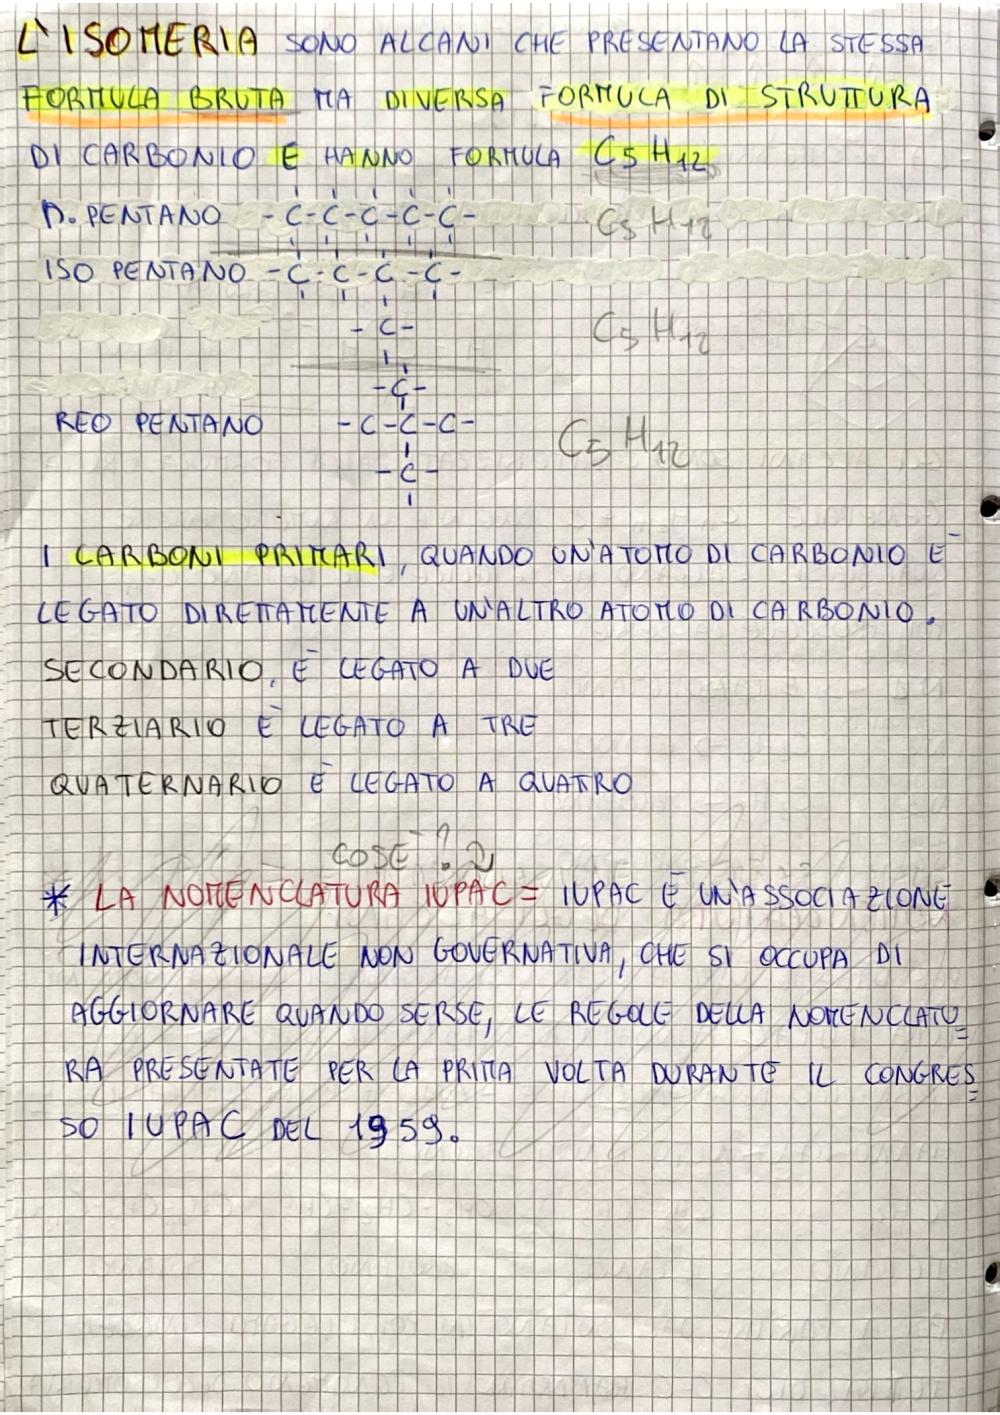 L'ISOMERIA SONO ALCANI CHE PRESENTANO LA STESSA
FORMULA BRUTA MA DIVERSA FORMULA DI STRUTTURA
DI CARBONIO E HANNO FORMULA C5 H12
N. PENTANO -C-C-C-C-C- C5 H12
ISO PENTANO -C-C-C-C-
-C- C5 H12
-C-
REO PENTANO -C-C-C- C5 H12
-C-
I CARBONI PRIMARI, QUANDO UN'ATOMO DI CARBONIO È
LEGATO DIRETTAMENTE A UN'ALTRO ATOMO DI CARBONIO.
SECONDARIO, È LEGATO A DUE
TERZIARIO È LEGATO A TRE
QUATERNARIO È LEGATO A QUATRO
COSE ?
* LA NOMENCLATURA IUPAC = IUPAC È UN'ASSOCIAZIONE
INTERNAZIONALE NON GOVERNATIVA, CHE SI OCCUPA DI
AGGIORNARE QUANDO SERSE, LE REGOLE DELLA NOMENCLATO
RA PRESENTATE PER LA PRIMA VOLTA DURANTE IL CONGRES
SO IUPAC DEL 1959.